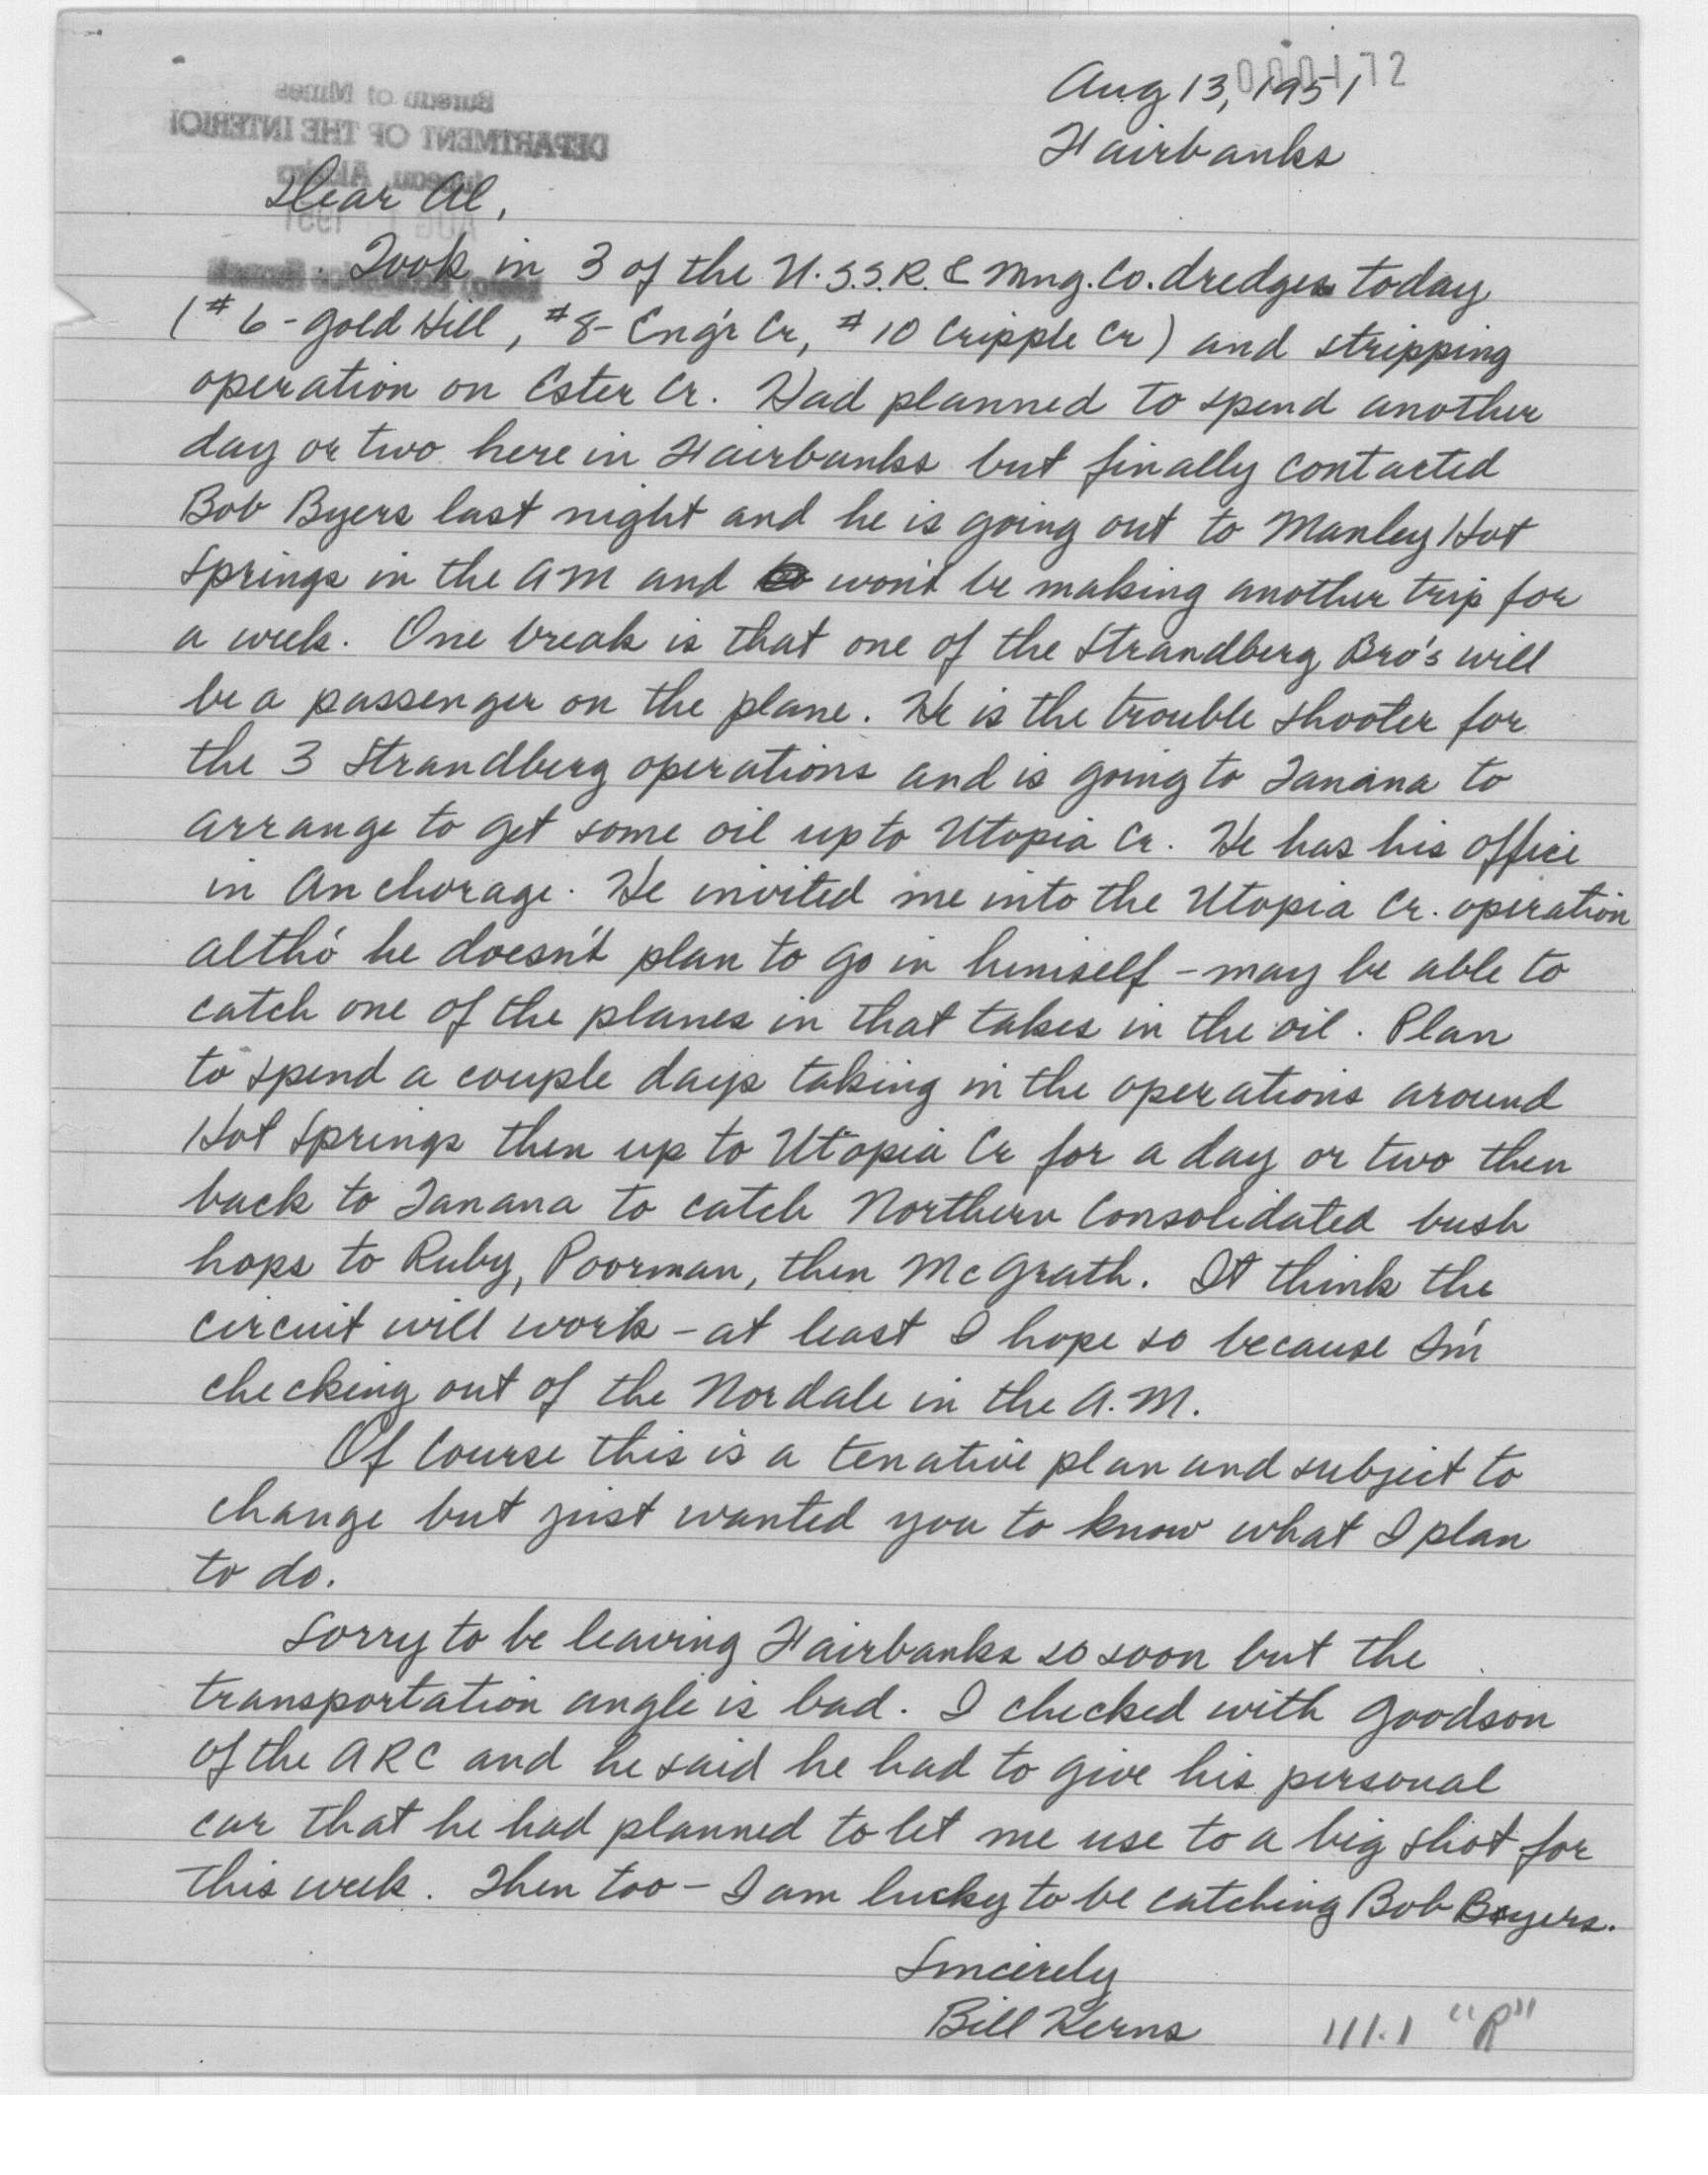 000172
Aug 13, 1951
Fairbanks
Bureau of Mines
DEPARTMENT OF THE INTERIOR
Juneau, Alaska
AUG 1951
Dear Al,
Took in 3 of the U.S.S.R. & Mng. Co. dredges today
(#6 - Gold Hill, #8 - Eng'r Cr, #10 Cripple Cr) and stripping
operation on Ester Cr. Had planned to spend another
day or two here in Fairbanks but finally contacted
Bob Byers last night and he is going out to Manley Hot
Springs in the AM and won't be making another trip for
a week. One break is that one of the Strandberg Bro's will
be a passenger on the plane. He is the trouble shooter for
the 3 Strandberg operations and is going to Tanana to
arrange to get some oil up to Utopia Cr. He has his office
in Anchorage. He invited me into the Utopia Cr. operation
altho' he doesn't plan to go in himself - may be able to
catch one of the planes in that takes in the oil. Plan
to spend a couple days taking in the operations around
Hot Springs then up to Utopia Cr for a day or two then
back to Tanana to catch Northern Consolidated bush
hops to Ruby, Poorman, then McGrath. It think the
circuit will work - at least I hope so because I'm
checking out of the Nordale in the A.M.
Of course this is a tenative plan and subject to
change but just wanted you to know what I plan
to do.
Sorry to be leaving Fairbanks so soon but the
transportation angle is bad. I checked with Goodson
of the ARC and he said he had to give his personal
car that he had planned to let me use to a big shot for
this week. Then too - I am lucky to be catching Bob Byers.
Sincerely
Bill Kerns
111.1 "R"